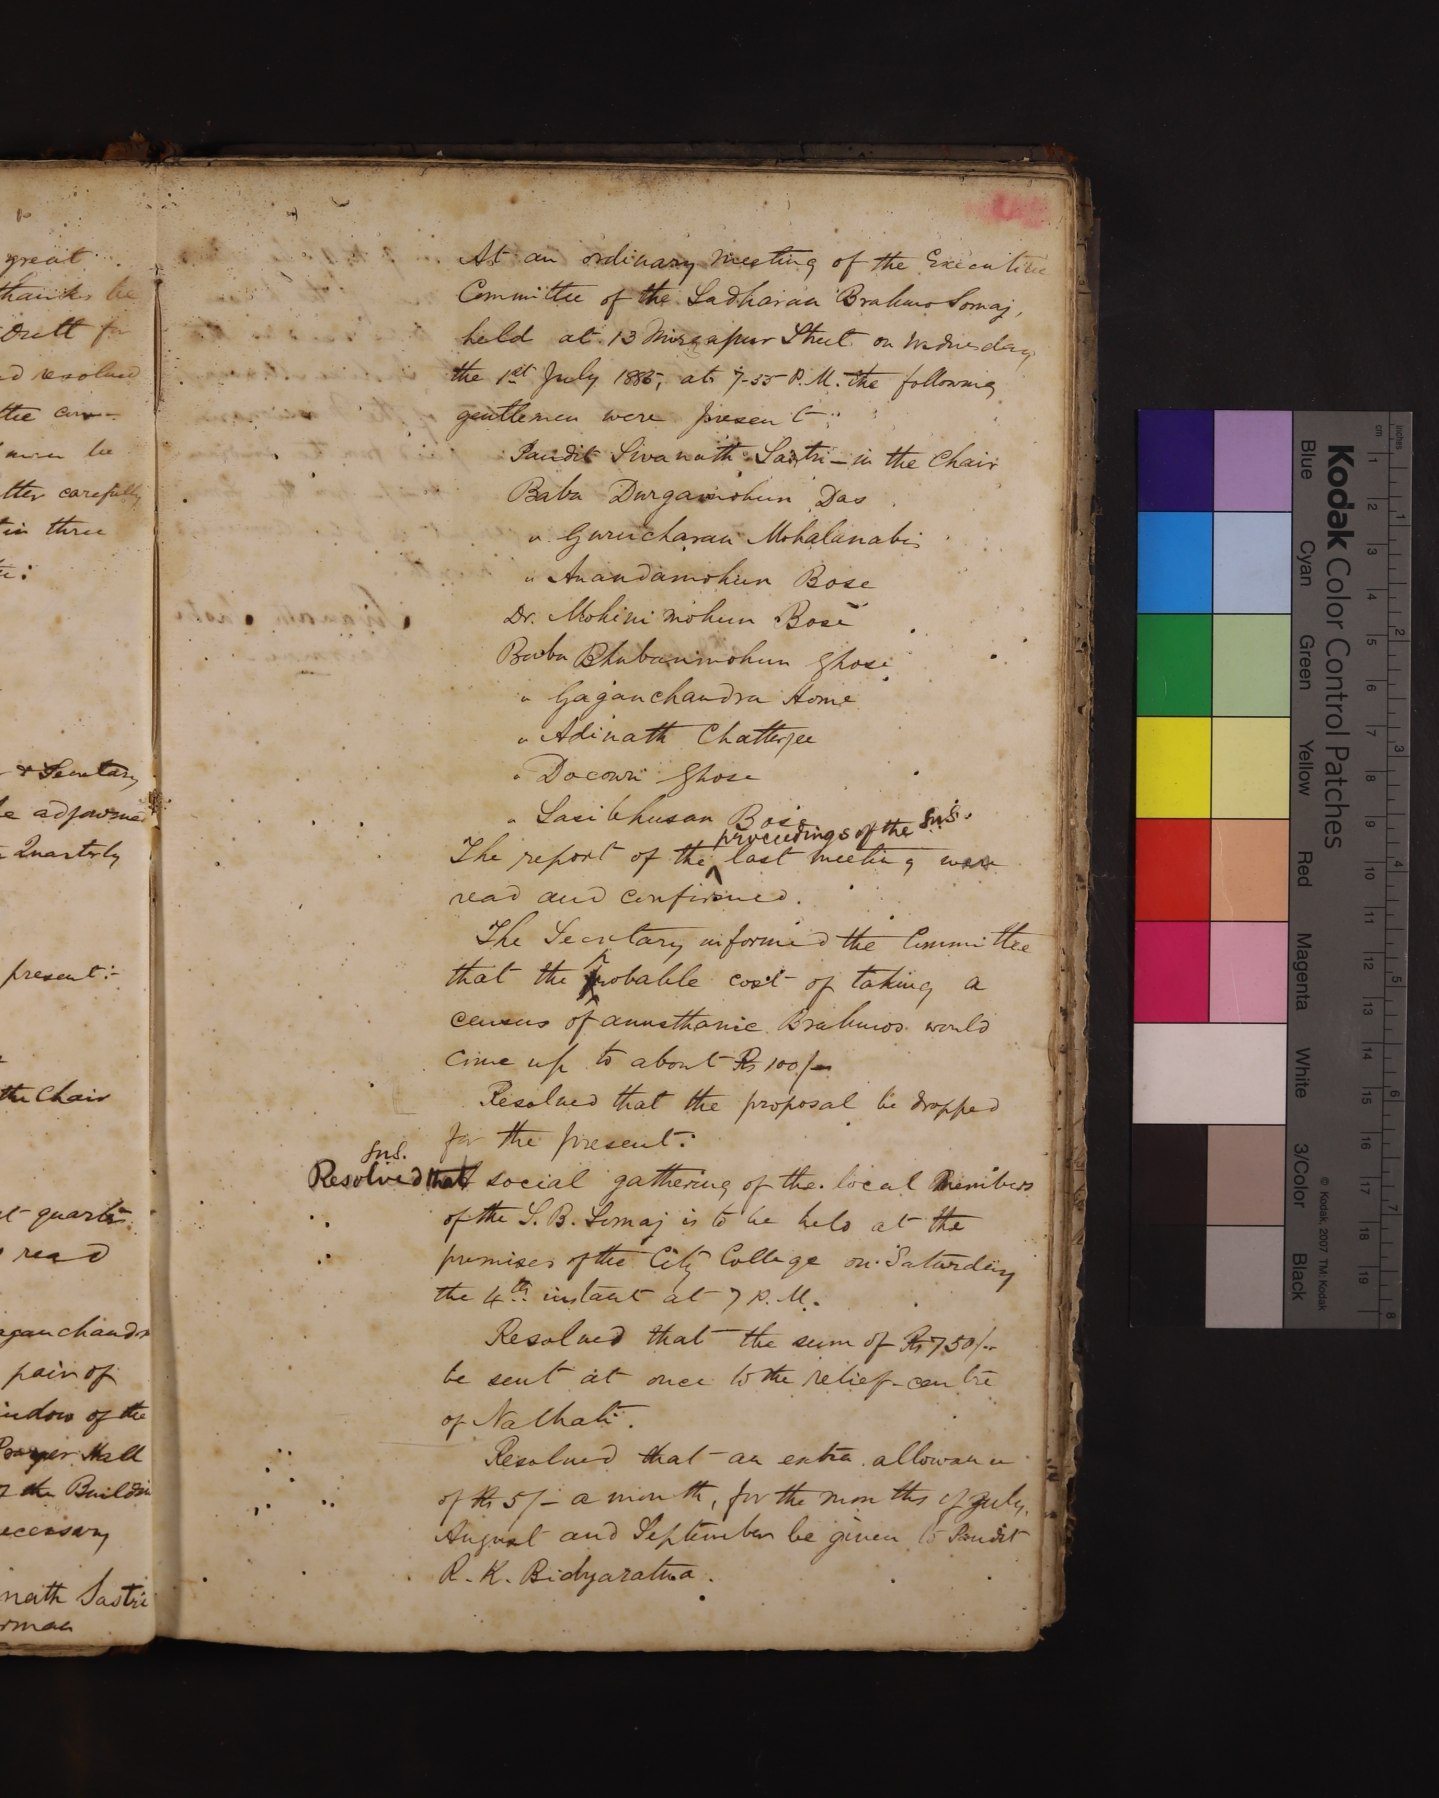 great
thanks be
Dutt for
resolved
be
carefully
in three
& Secretary
be adjourned
Quarterly
present:-
the Chair
quarter
read
pair of
window of the
Prayer Hall
of the Building
necessary
nath Sastri
At an ordinary meeting of the Executive
Committee of the Sadharan Brahmo Somaj,
held at 13 Mirzapur Street on Wednesday
the 1st July 1885, at 7-35 P.M. the following
gentlemen were present:
Pandit Sivanath Sastri - in the Chair
Babu Durgamohun Das
" Gurucharan Mohalanabis
" Anandamohun Bose
Dr. Mohinimohun Bose
Babu Bhubanmohun Ghose
" Gaganchandra Home
" Adinath Chatterjee
" Docowri Ghose
" Sasibhusan Bose
proceedings of the SnS.
The report of the ^ last meeting was
read and confirmed.
The Secretary informed the Committee
that the probable cost of taking a
census of anusthanic Brahmos would
come up to about Rs 100/-
Resolved that the proposal be dropped
for the present.
SnS.
Resolved that social gathering of the local Members
of the S. B. Somaj is to be held at the
premises of the City College on Saturday
the 4th instant at 7 P.M.
Resolved that the sum of Rs 750/-
be sent at once to the relief-centre
of Nalhati.
Resolved that an extra allowance
of Rs 5/- a month, for the months of July,
August and September be given to Pandit
R. K. Bidyaratna.
Kodak Color Control Patches
© Kodak, 2007 TM: Kodak
Blue Cyan Green Yellow Red Magenta White 3/Color Black
inches 1 2 3 4 5 6 7 8
cm 1 2 3 4 5 6 7 8 9 10 11 12 13 14 15 16 17 18 19